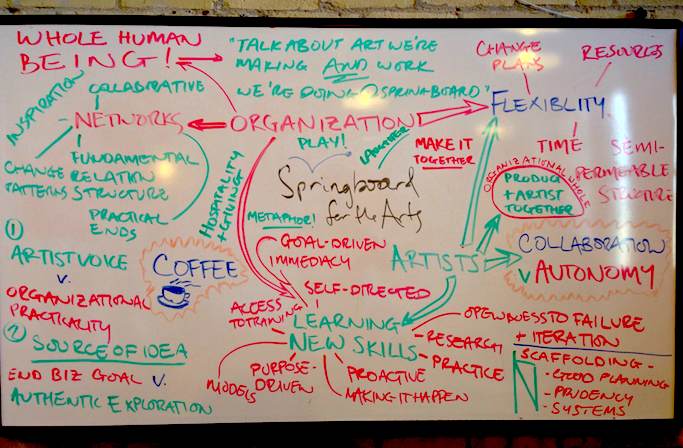 WHOLE HUMAN
BEING!
"TALK ABOUT ART WE'RE
MAKING AND WORK
WE'RE DOING @ SPRINGBOARD"
CHANGE
PLANS
RESOURCES
FLEXIBLITY
TIME
SEMI-
PERMEABLE
STRUCTURE
INSPIRATION
COLLABORATIVE
- NETWORKS
FUNDAMENTAL
CHANGE RELATION
PATTERNS STRUCTURE
PRACTICAL
ENDS
ORGANIZATION
PLAY!
LAUGHTER
MAKE IT
TOGETHER
ORGANIZATIONAL WHOLE
PRODUCT
+ ARTIST
TOGETHER
HOSPITALITY
+ GIVING
Springboard
for the Arts
METAPHOR!
GOAL-DRIVEN
IMMEDIACY
ARTISTS
COLLABORATION
V AUTONOMY
1
ARTIST VOICE
V.
ORGANIZATIONAL
PRACTICALITY
COFFEE
2
SOURCE OF IDEA
END BIZ GOAL V.
AUTHENTIC EXPLORATION
SELF-DIRECTED
ACCESS
TO TRAINING
LEARNING
NEW SKILLS
OPENNESS TO FAILURE
+ ITERATION
- RESEARCH
- PRACTICE
MODELS
PURPOSE-
DRIVEN
PROACTIVE
MAKING IT HAPPEN
SCAFFOLDING -
- GOOD PLANNING
- PRUDENCY
- SYSTEMS